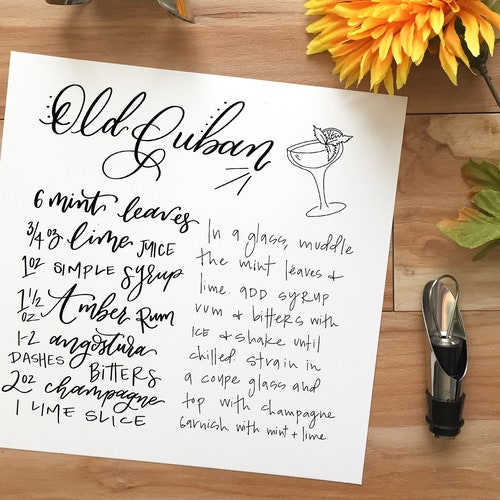 Old Cuban
6 mint leaves
3/4 oz lime JUICE
1oz SIMPLE syrup
1 1/2 oz. Amber Rum
1-2 angostura
DASHES BITTERS
2oz champagne
1 LIME SLICE
In a glass, muddle
the mint leaves +
lime. ADD SYRUP
rum & bitters with
ICE & shake until
chilled. strain in
a coupe glass and
top with champagne
Garnish with mint + lime.